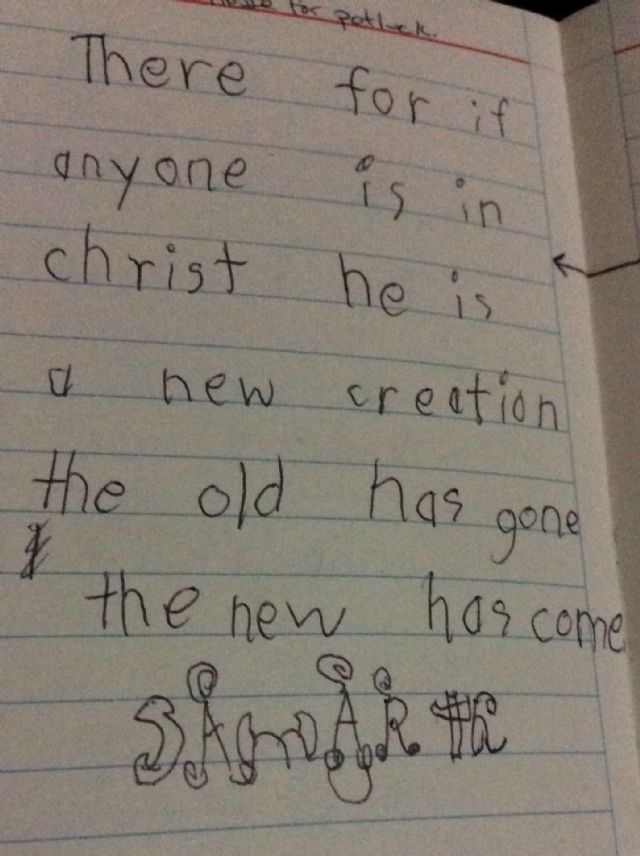 for potluck.
There for if
anyone is in
christ he is
a new creation
the old has gone
the new has come